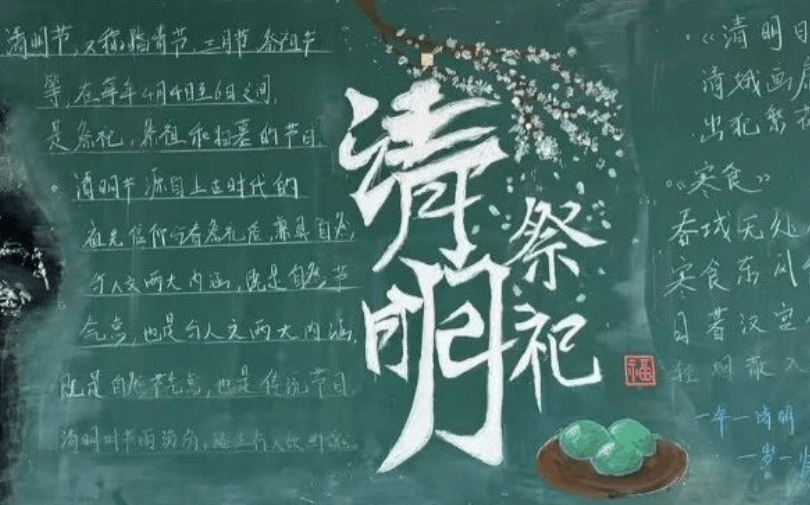 清明节,又称踏青节、三月节、祭祖节
等,在每年4月4日至6日之间,
是祭祀,祭祖和扫墓的节日
清明节源自上古时代的
祖先信仰与春祭礼俗,兼具自然
与人文两大内涵,既是自然节
气点,也是与人文两大内涵,
既是自然节气点,也是传统节日
清明时节雨纷纷,路上行人欲断
清明
祭祀
福
《清明日
清娥画
出犯繁
《寒食》
春城无处
寒食东风
日暮汉宫
轻烟散入
一年一清明
一岁一